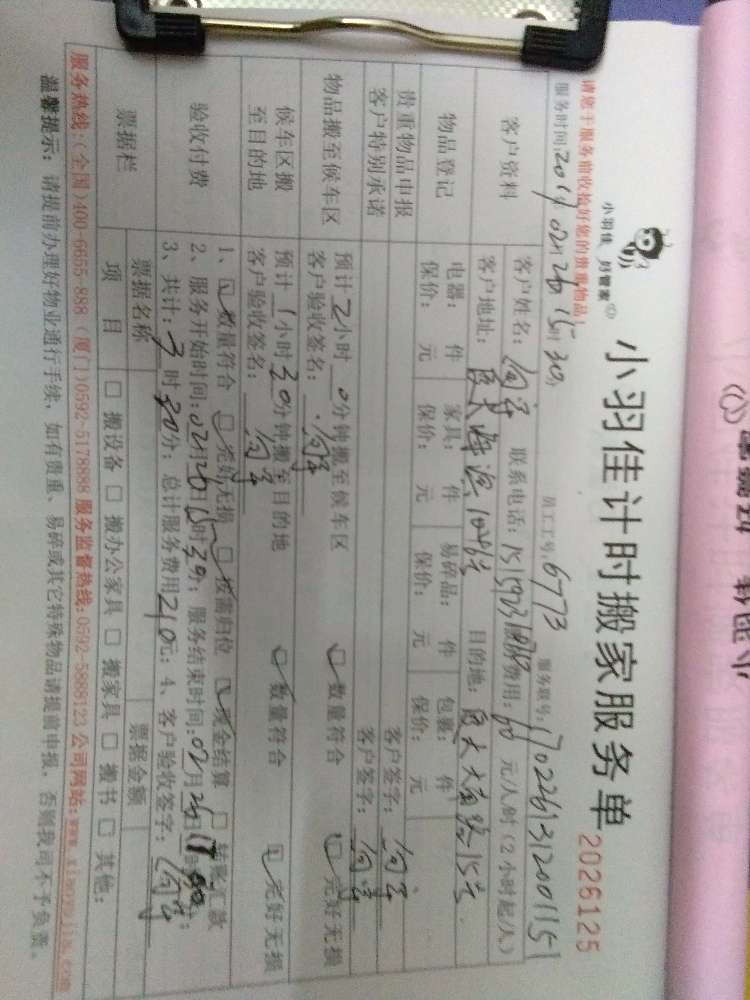 小羽佳 好管家
小羽佳计时搬家服务单
2026125
请您于服务前收捡好您的贵重物品!
服务时间: 员工工号: 6773 服务联号: 1702261312001151
客户资料
客户姓名: 联系电话: 费用: 60 元/人/时(2小时起/人)
客户地址: 厦大海滨 目的地: 厦大大南路15号
物品登记
电器: 件 家具: 件 易碎品: 件 包裹: 件
保价: 元 保价: 元 保价: 元 保价: 元
贵重物品申报 客户签字:
客户特别承诺 客户签字:
物品搬至候车区
预计 2 小时 0 分钟搬至候车区 数量符合 完好无损
客户验收签名:
候车区搬至目的地
预计 1 小时 30 分钟搬至目的地 数量符合 完好无损
客户验收签名:
验收付费
1、数量符合 完好无损 按需归位 现金结算 转账汇款
2、服务开始时间: 02月26日 时 30分; 服务结束时间: 02月26日
3、共计: 时 30 分; 总计服务费用 210 元; 4、客户验收签字:
票据栏
票据名称 票据金额
项 目 □ 搬设备 □ 搬办公家具 □ 搬家具 □ 搬书 □ 其他:
服务热线:(全国)400-6655 888 (厦门)0592-5178888 服务监督热线:0592-5888123 公司网站:
温馨提示: 请提前办理好物业通行手续, 如有贵重、易碎或其它特殊物品请提前申报, 否则我司不予负责。